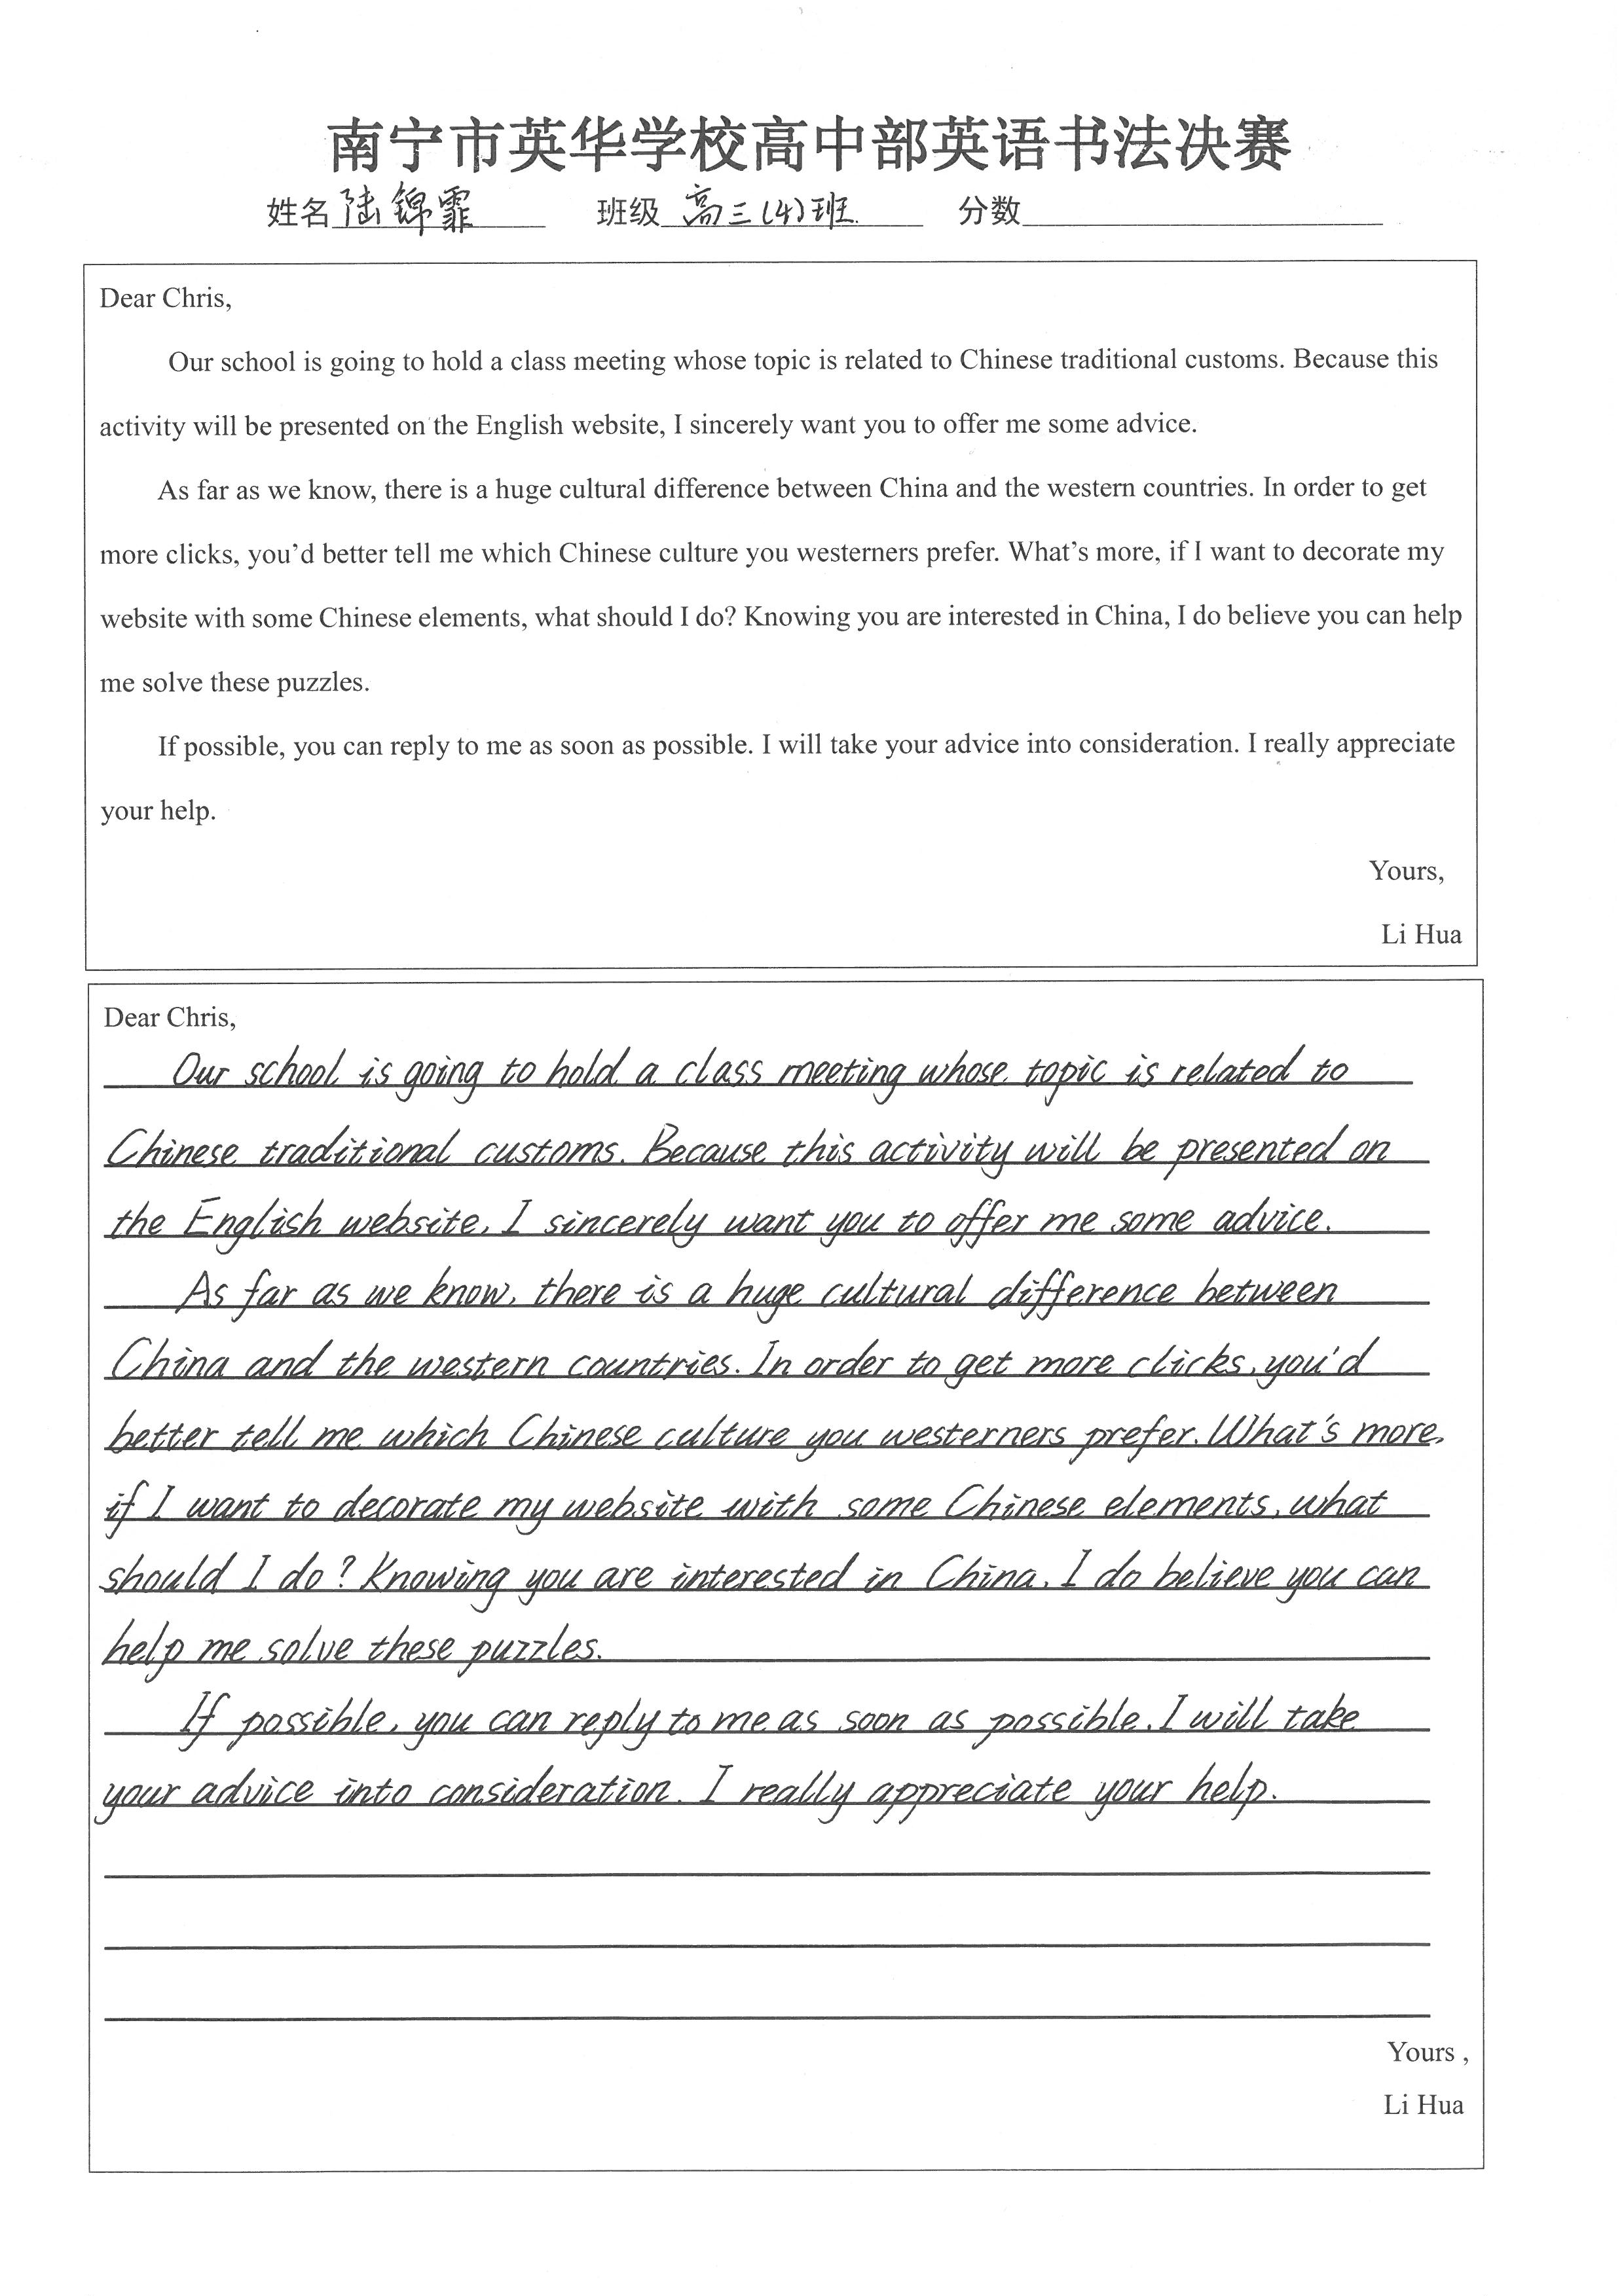 南宁市英华学校高中部英语书法决赛
姓名 陆锦霏 班级 高三(4)班. 分数
Dear Chris,
Our school is going to hold a class meeting whose topic is related to Chinese traditional customs. Because this
activity will be presented on the English website, I sincerely want you to offer me some advice.
As far as we know, there is a huge cultural difference between China and the western countries. In order to get
more clicks, you’d better tell me which Chinese culture you westerners prefer. What’s more, if I want to decorate my
website with some Chinese elements, what should I do? Knowing you are interested in China, I do believe you can help
me solve these puzzles.
If possible, you can reply to me as soon as possible. I will take your advice into consideration. I really appreciate
your help.
Yours,
Li Hua
Dear Chris,
Our school is going to hold a class meeting whose topic is related to
Chinese traditional customs. Because this activity will be presented on
the English website, I sincerely want you to offer me some advice.
As far as we know, there is a huge cultural difference between
China and the western countries. In order to get more clicks, you'd
better tell me which Chinese culture you westerners prefer. What's more,
if I want to decorate my website with some Chinese elements, what
should I do? Knowing you are interested in China, I do believe you can
help me solve these puzzles.
If possible, you can reply to me as soon as possible. I will take
your advice into consideration. I really appreciate your help.
Yours ,
Li Hua